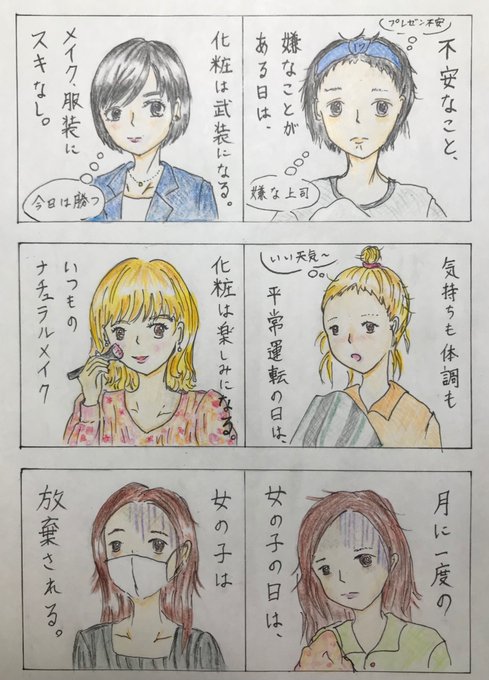 プレゼン不安
不安なこと、
嫌なことが
ある日は、
嫌な上司
化粧は武装になる。
メイク、服装に
スキなし。
今日は勝つ
気持ちも体調も
いい天気〜
平常運転の日は、
化粧は楽しみになる。
いつもの
ナチュラルメイク
月に一度の
女の子の日は、
女の子は
放棄される。